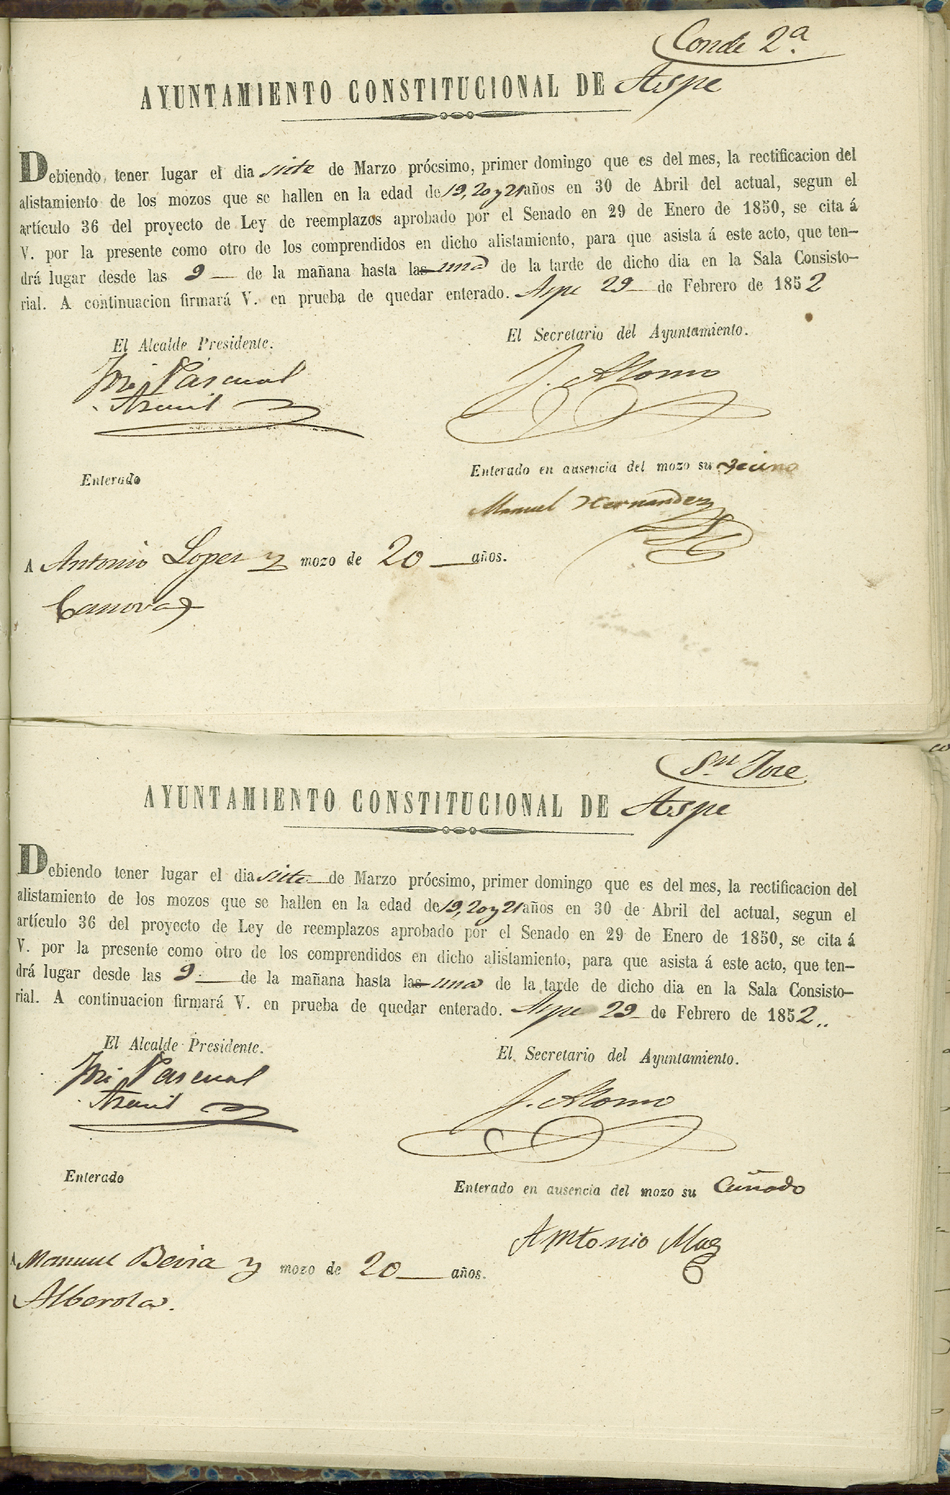 Conde 2ª
AYUNTAMIENTO CONSTITUCIONAL DE Aspe
Debiendo tener lugar el dia siete de Marzo prócsimo, primer domingo que es del mes, la rectificacion del
alistamiento de los mozos que se hallen en la edad de 19, 20 y 21 años en 30 de Abril del actual, segun el
artículo 36 del proyecto de Ley de reemplazos aprobado por el Senado en 29 de Enero de 1850, se cita á
V. por la presente como otro de los comprendidos en dicho alistamiento, para que asista á este acto, que ten-
drá lugar desde las 9 de la mañana hasta las una de la tarde de dicho dia en la Sala Consisto-
rial. A continuacion firmará V. en prueba de quedar enterado. Aspe 29 de Febrero de 1852
El Alcalde Presidente.
El Secretario del Ayuntamiento.
José Pascual
J. Alonso
Enterado
Enterado en ausencia del mozo su vecino
Manuel Hernandez
A Antonio Lopez y mozo de 20 años.
Canovas
Sn Jose
AYUNTAMIENTO CONSTITUCIONAL DE Aspe
Debiendo tener lugar el dia siete de Marzo prócsimo, primer domingo que es del mes, la rectificacion del
alistamiento de los mozos que se hallen en la edad de 19, 20 y 21 años en 30 de Abril del actual, segun el
artículo 36 del proyecto de Ley de reemplazos aprobado por el Senado en 29 de Enero de 1850, se cita á
V. por la presente como otro de los comprendidos en dicho alistamiento, para que asista á este acto, que ten-
drá lugar desde las 9 de la mañana hasta las una de la tarde de dicho dia en la Sala Consisto-
rial. A continuacion firmará V. en prueba de quedar enterado. Aspe 29 de Febrero de 1852..
El Alcalde Presidente.
El Secretario del Ayuntamiento.
José Pascual
J. Alonso
Enterado
Enterado en ausencia del mozo su Cuñado
Amtonio
A Manuel Bevia y mozo de 20 años.
Alberola.